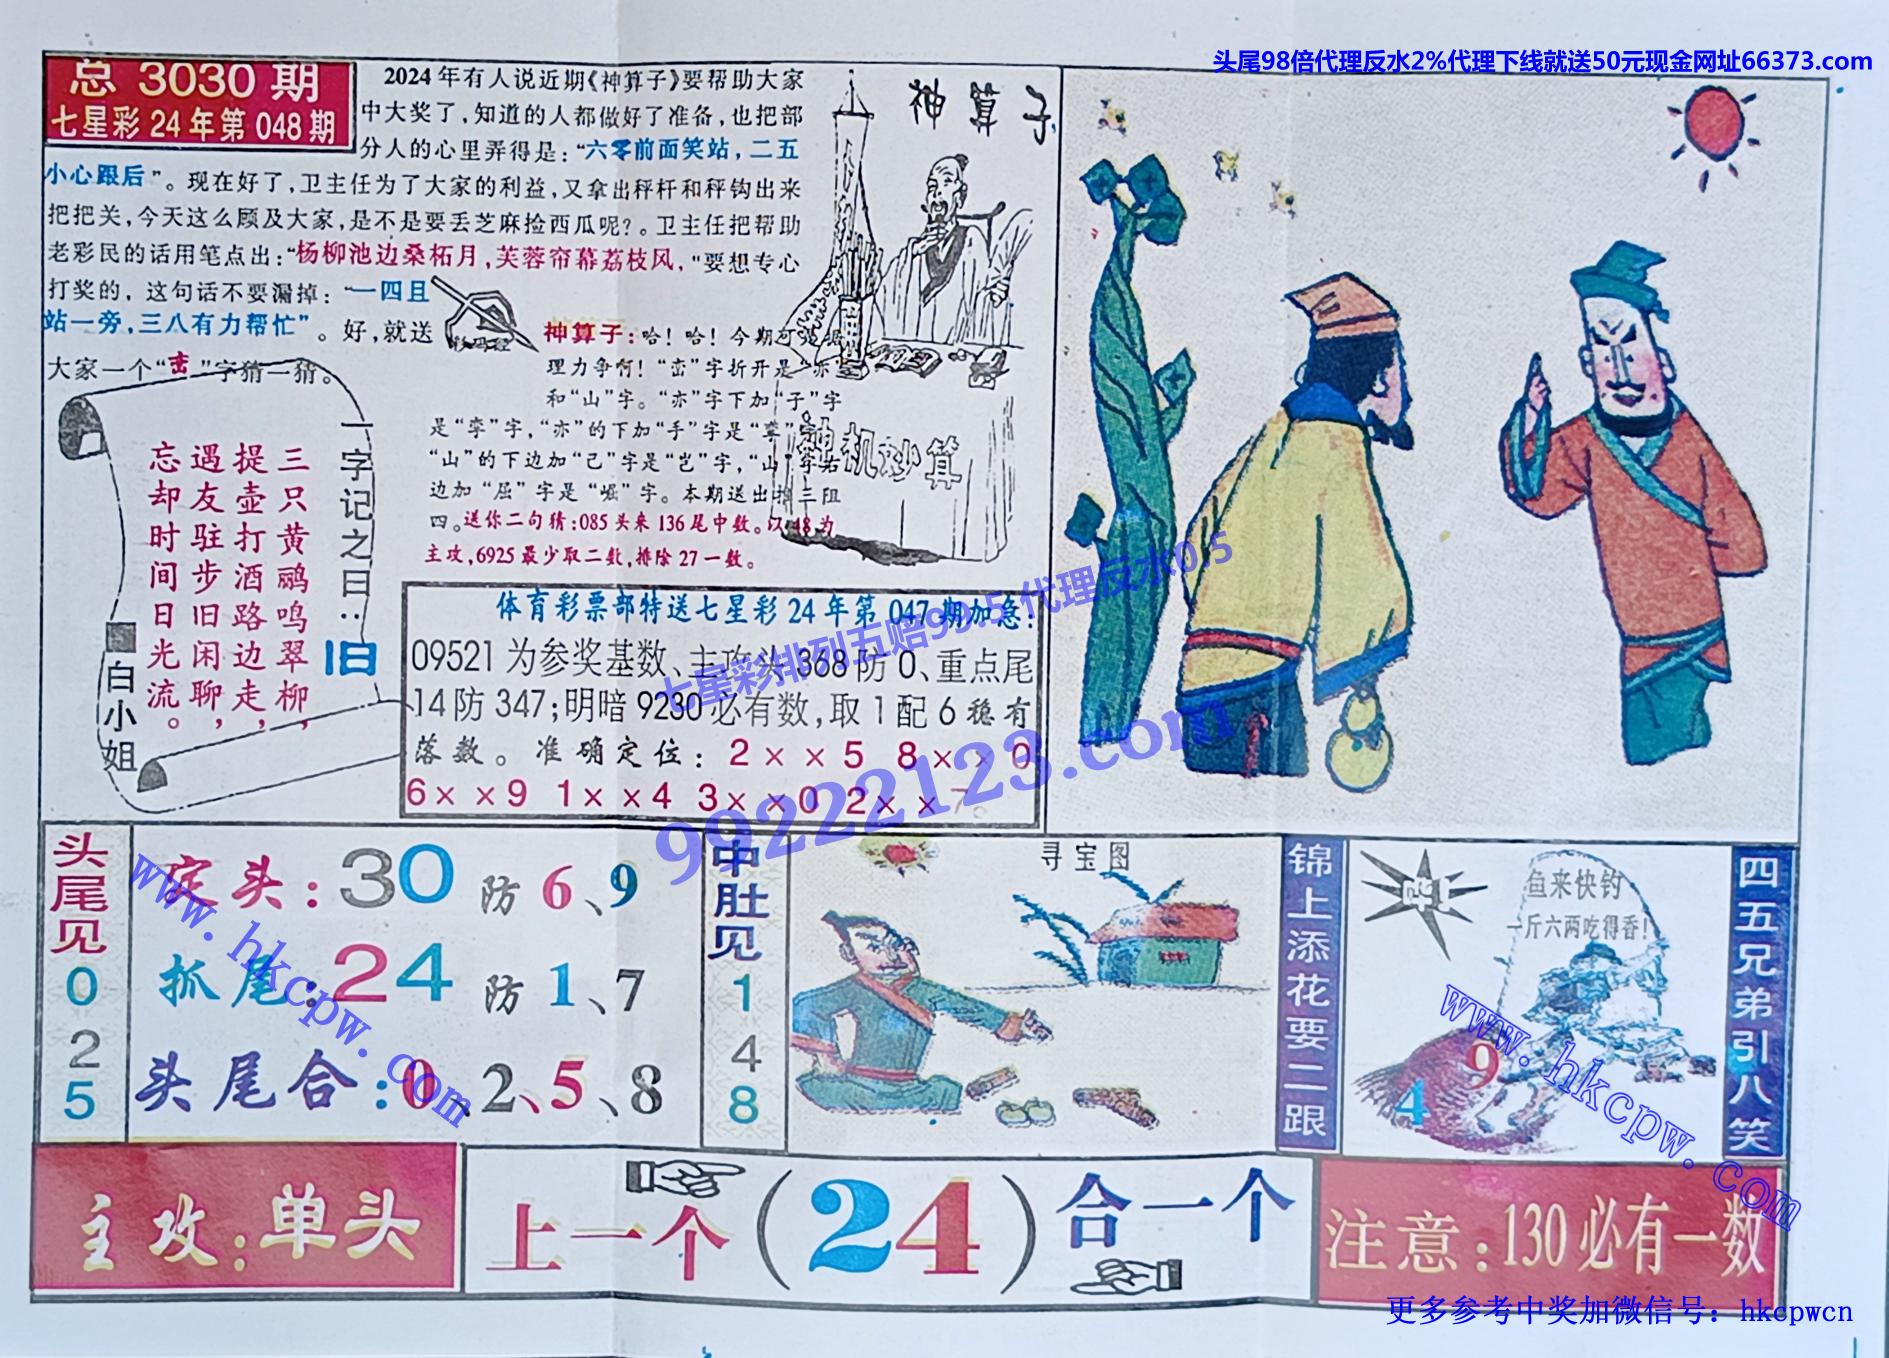 头尾98倍代理反水2%代理下线就送50元现金网址66373.com
总 3030 期
七星彩 24 年第 048 期
2024 年有人说近期《神算子》要帮助大家
中大奖了，知道的人都做好了准备，也把部
分人的心里弄得是：“六零前面笑站，二五
小心跟后”。现在好了，卫主任为了大家的利益，又拿出秤杆和秤钩出来
把把关，今天这么顾及大家，是不是要丢芝麻捡西瓜呢？。卫主任把帮助
老彩民的话用笔点出：“杨柳池边桑柘月，芙蓉帘幕荔枝风，”要想专心
打奖的，这句话不要漏掉：“一四且
站一旁，三八有力帮忙”。好，就送
大家一个“峦”字猜一猜。
神算子
神算子：哈！哈！今期可
理力争啊！“峦”字折开是“亦”
和“山”字。“亦”字下加“子”字
是“孪”字，“亦”的下加“手”字是“挛”
“山”的下边加“己”字是“岂”字，“山”字右
边加“屈”字是“崛”字。本期送出推三阻
四。送你二句猜：085 头来 136 尾中数。以 48 为
主攻，6925 最少取二数，排除 27 一数。
神机妙算
一字记之曰：旧
三只黄鹂鸣翠柳，
提壶打酒路边走，
遇友驻步旧闲聊，
忘却时间日光流。
白小姐
体育彩票部特送七星彩 24 年第 047 期加急：
09521 为参奖基数、主攻头 368 防 0、重点尾
14 防 347；明暗 9230 必有数，取 1 配 6 稳有
落数。准确定位：2××5 8××0
6××9 1××4 3××0 2××7。
七星彩排列五赔99.5 代理反水0.5
99222123.com
头尾见
0
2
5
定头：30 防 6、9
抓尾：24 防 1、7
头尾合：0、2、5、8
www.hkcpw.com
中肚见
1
4
8
寻宝图
锦上添花要二跟
鱼来快钓
一斤六两吃得香！
9
4
www.hkcpw.com
四五兄弟引八笑
主攻：单头
上一个（24）合一个
注意：130 必有一数
更多参考中奖加微信号：hkcpwcn